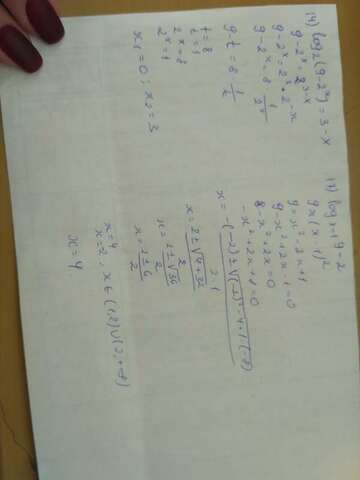 14) log₂(9-2ˣ)=3-x
9-2ˣ=2³⁻ˣ
9-2ˣ=2³·2⁻ˣ
9-2ˣ=8·1/2ˣ
9-t=8·1/t
t=8
t=1
2ˣ=8
2ˣ=1
x₁=0; x₂=3
9=x²-2x+1
9-x²+2x-1=0
8-x²+2x=0
-x²+2x+8=0
x=-(-2)±√(-2)²-4·1·(-8)/2·1
x=2±√4+32/2
x=2±√36/2
x=2±6/2
x=4
x=4